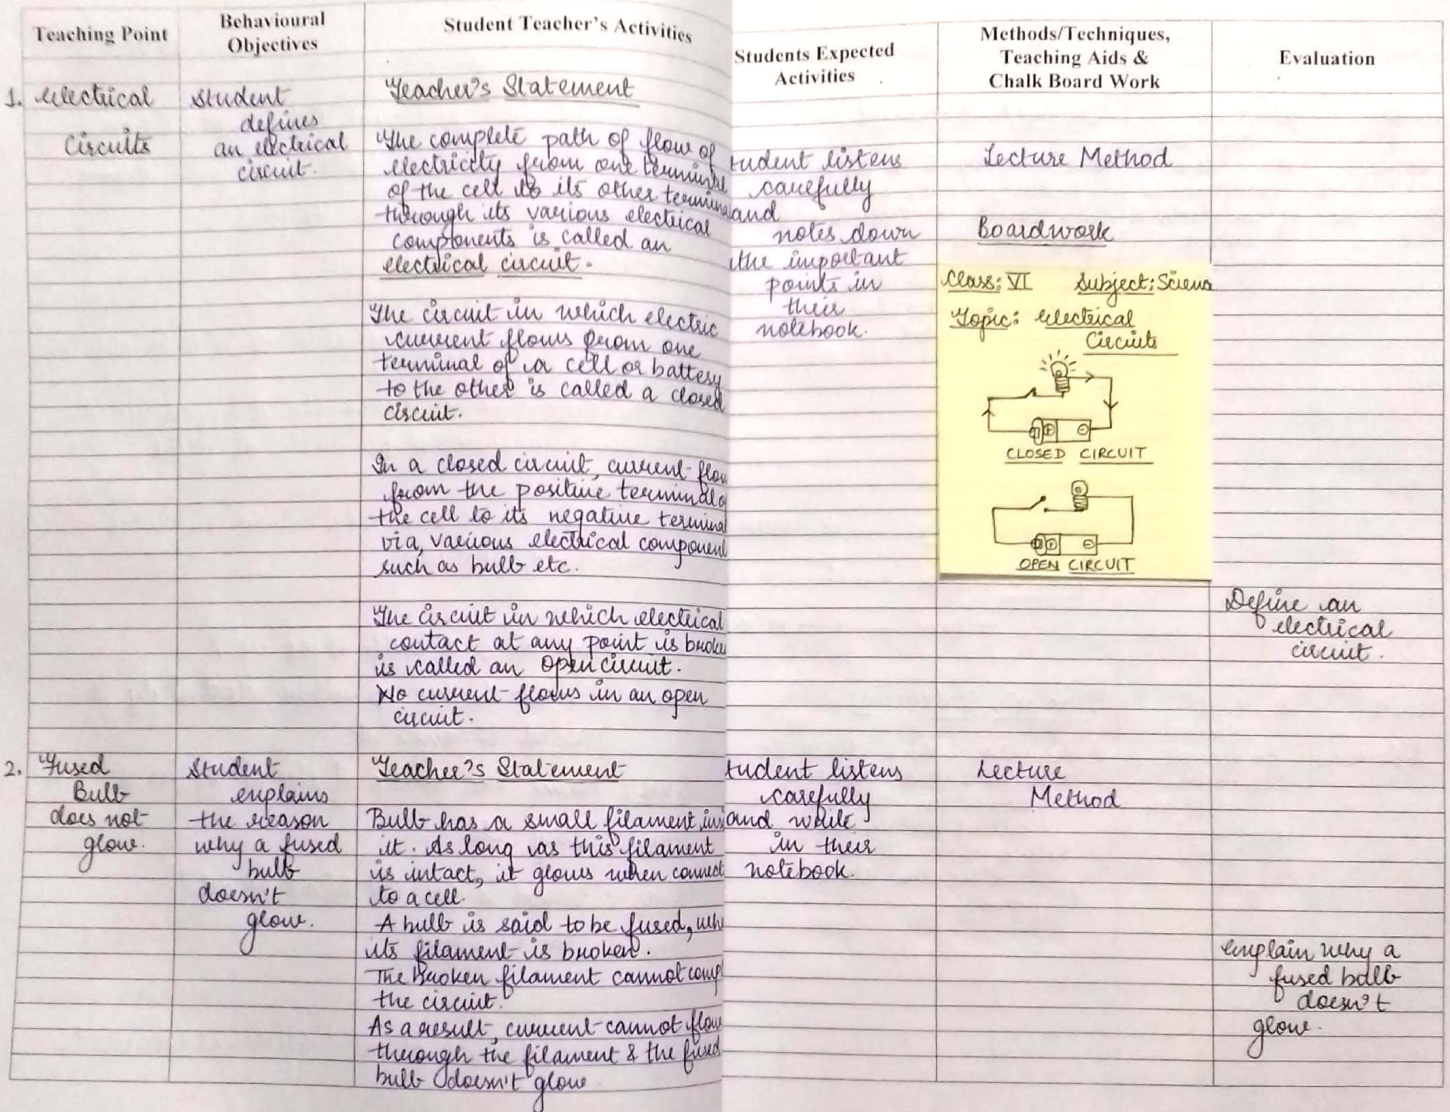 Teaching Point
Behavioural
Objectives
Student Teacher's Activities
Students Expected
Activities
Methods/Techniques,
Teaching Aids &
Chalk Board Work
Evaluation
1. Electrical
Circuits
Student
defines
an electrical
circuit.
Teacher's Statement
The complete path of flow of
electricity from one terminal
of the cell to its other terminal
through its various electrical
components is called an
electrical circuit.
The circuit in which electric
current flows from one
terminal of a cell or battery
to the other is called a closed
circuit.
In a closed circuit, current flow
from the positive terminal o
the cell to its negative termina
via, various electrical component
such as bulb etc.
The circuit in which electrical
contact at any point is broke
is called an open circuit.
No current flows in an open
circuit.
tudent listens
carefully
and
notes down
the important
points in
their
notebook.
Lecture Method
Boardwork
Class: VI Subject: Scienc
Topic: Electrical
Circuits
+ -
CLOSED CIRCUIT
+ -
OPEN CIRCUIT
Define an
electrical
circuit.
2. Fused
Bulb
does not
glow.
Student
explains
the reason
why a fused
bulb
doesn't
glow.
Teacher's Statement
Bulb has a small filament in
it. As long as this filament
is intact, it glows when connect
to a cell.
A bulb is said to be fused, whe
its filament is broken.
The Broken filament cannot comp
the circuit.
As a result, current cannot flow
through the filament & the fused
bulb doesn't glow
tudent listens
carefully
and write
in their
notebook.
Lecture
Method
Explain why a
fused bulb
doesn't
glow.